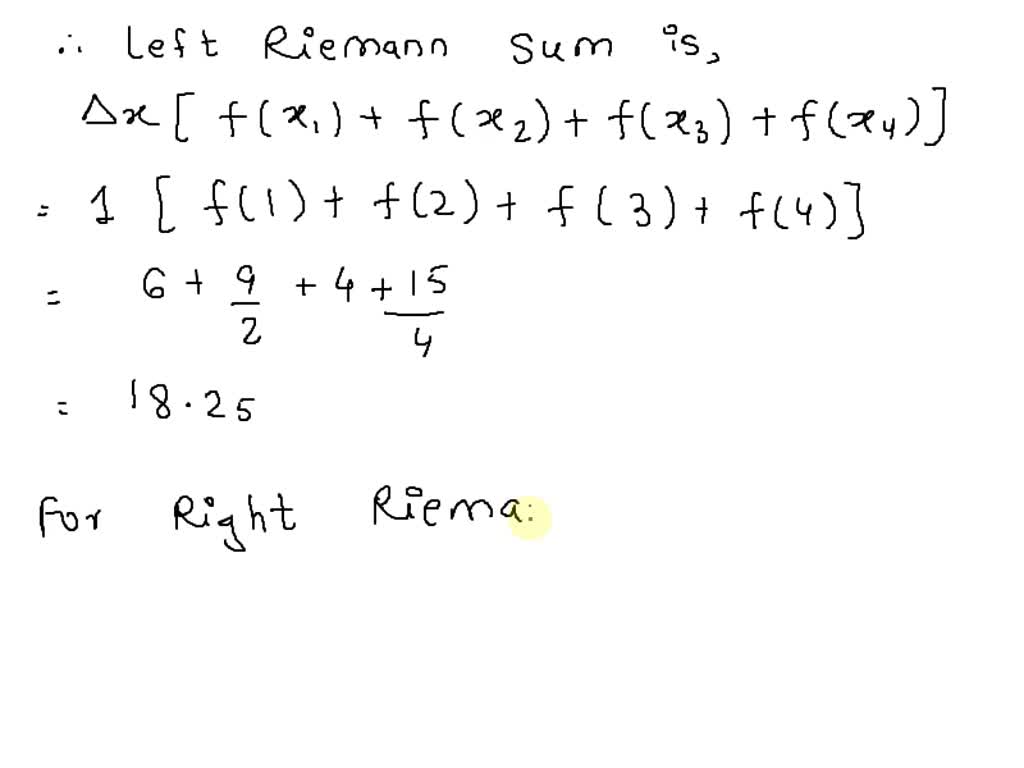 ∴ Left Riemann Sum is,
Δx [ f(x₁) + f(x₂) + f(x₃) + f(x₄)]
= 1 [ f(1) + f(2) + f(3) + f(4)]
= 6 + 9/2 + 4 + 15/4
= 18.25
For Right Riema